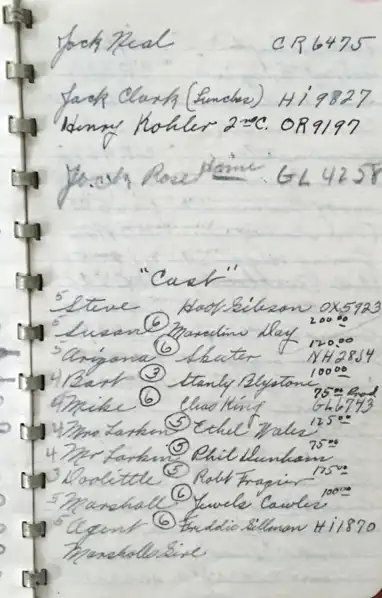 Jack Neal CR 6475
Jack Clark (Lunches) Hi 9827
Henry Kohler 2nd C. OR 9197
Jack Rose Home GL 4258
"Cast"
5 Steve Hoot Gibson OX5923
200 00
5 Susan 6 Marceline Day
120 00
5 Arizona 6 Skeeter NH2834
100 00
4 Bart 3 Stanly Blystone
75 00
6 Mike 6 Chas King GL6743
125 00
4 Mrs Larkin 5 Ethel Wales
75 00
4 Mr Larkin 5 Phil Dunham
175 00
3 Doolittle 5 Robt Frazier
100 00
5 Marshall 6 Jewels Cowles
6 Agent 6 Freddie Gillman Hi 1870
Marshalls Girl